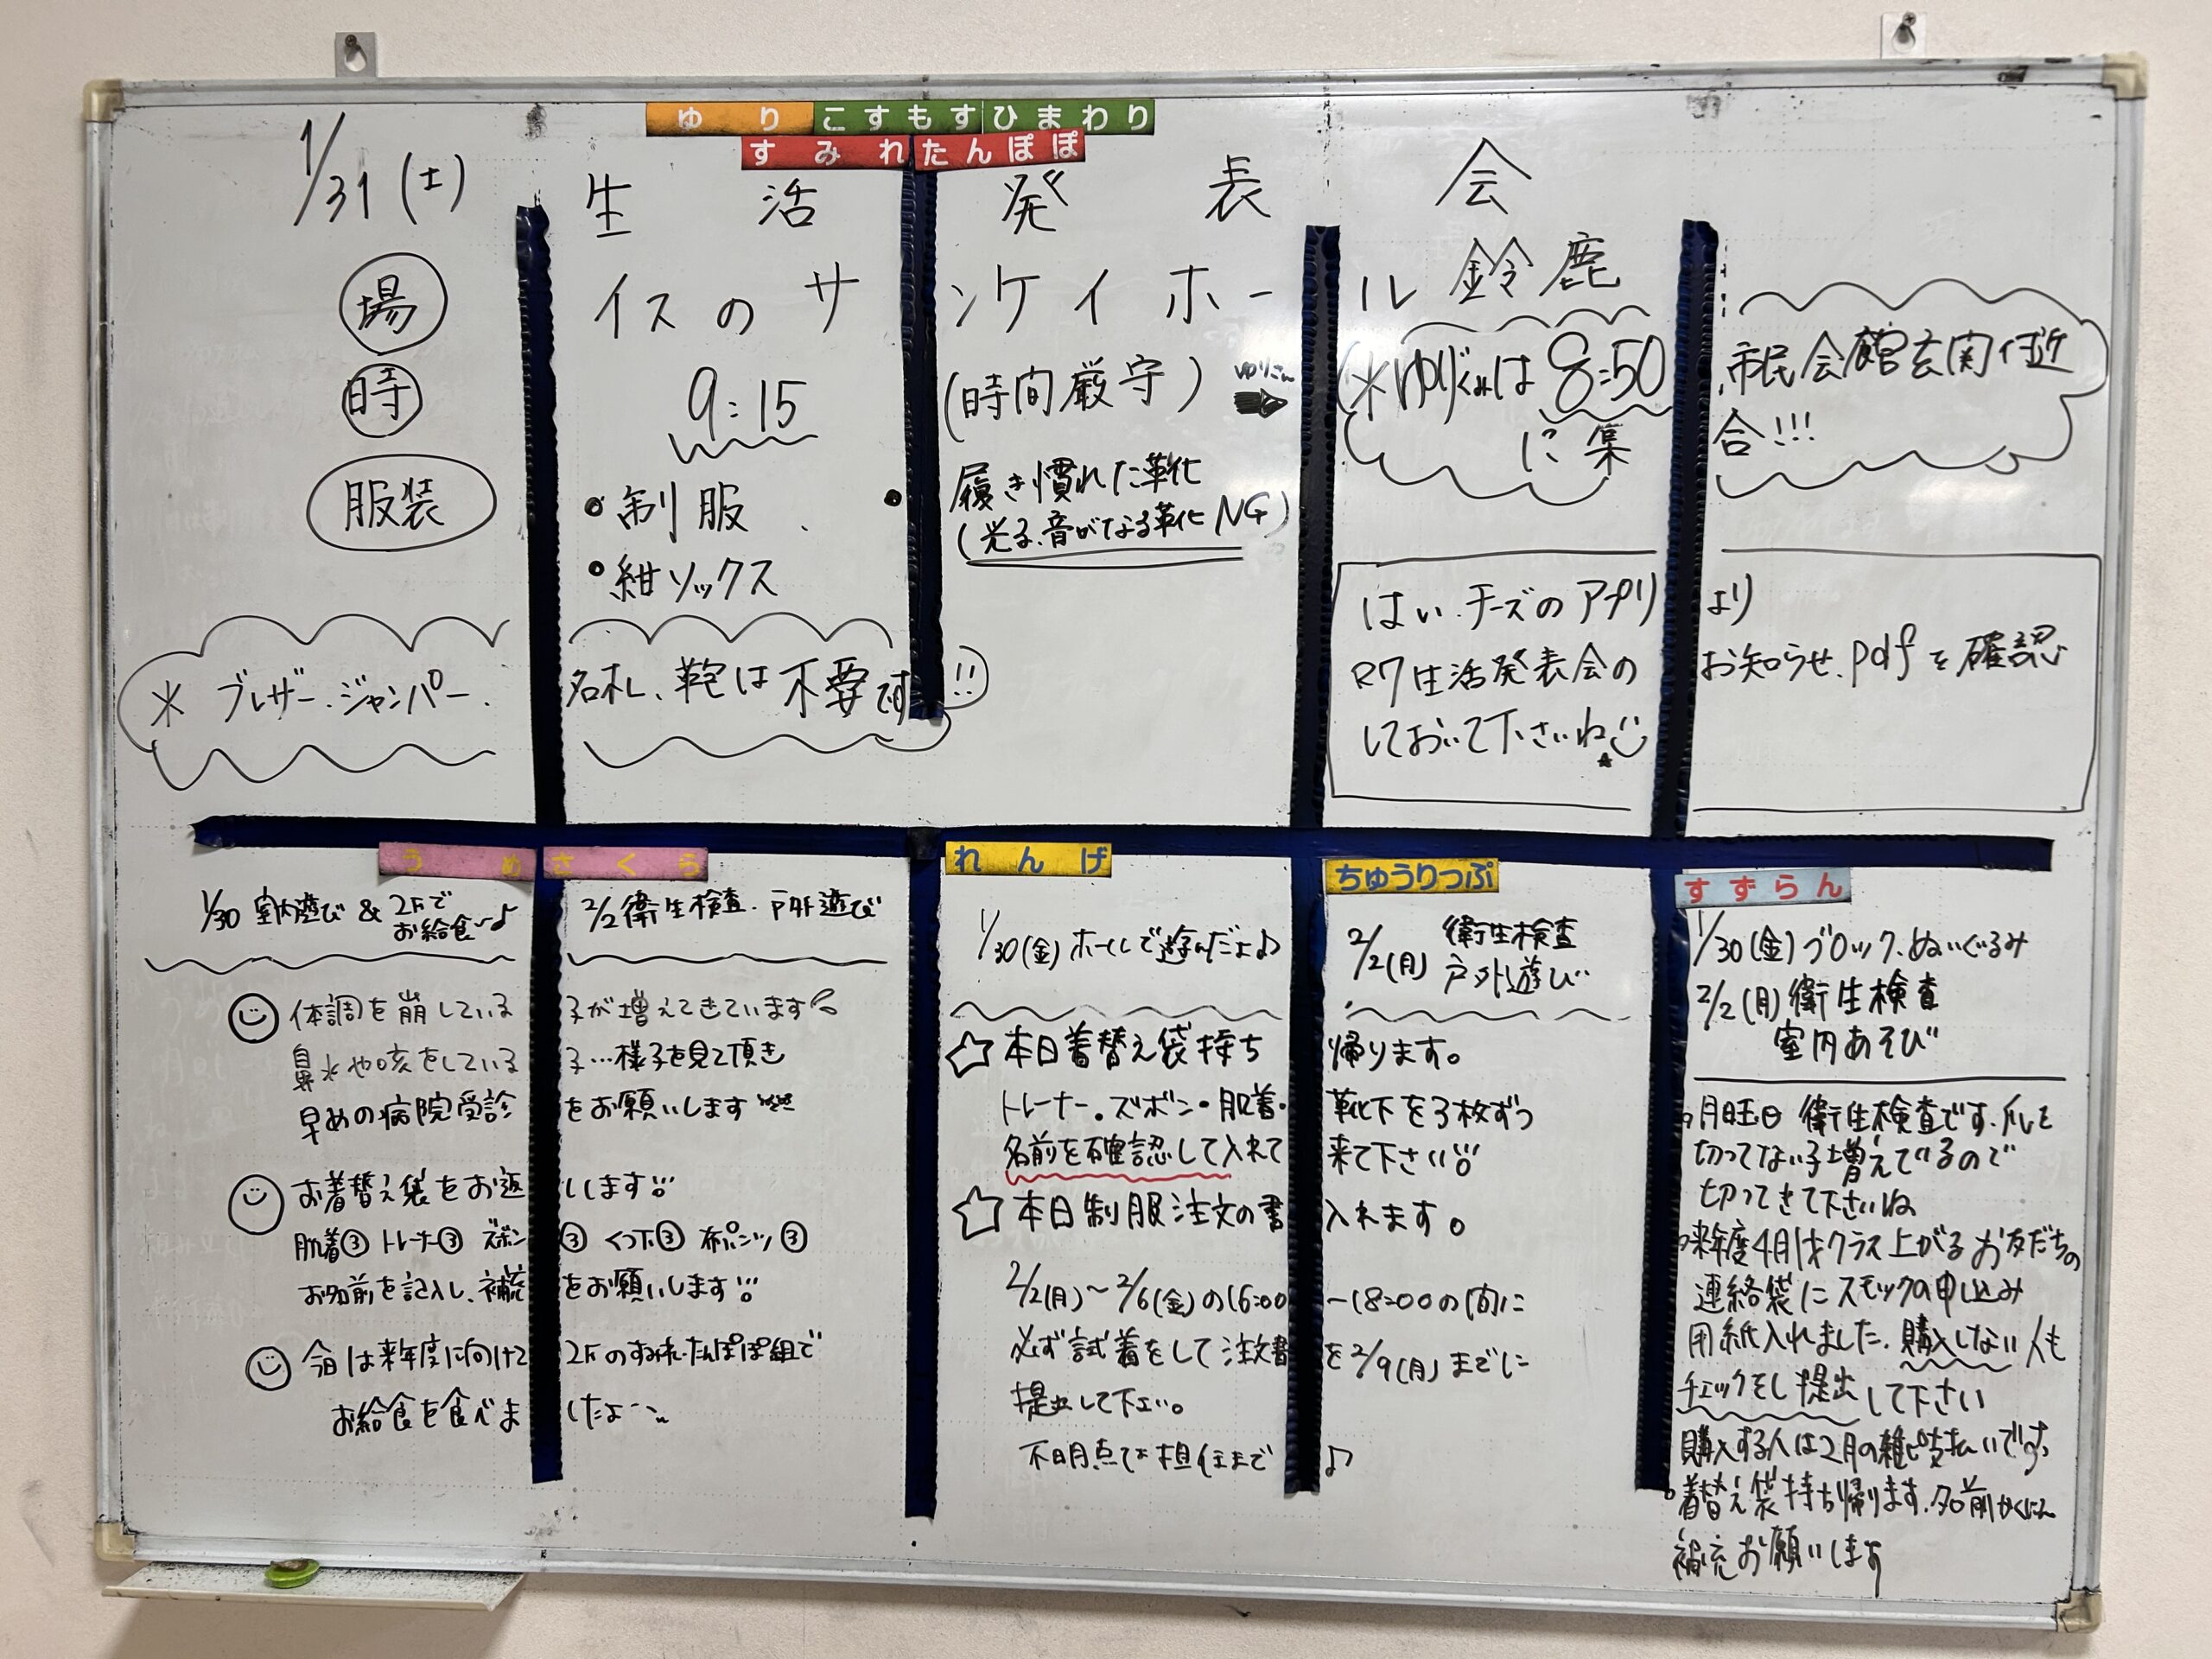 ゆり こすもす ひまわり
すみれ たんぽぽ
1/31(土) 生活発表会
場 イスのサンケイホール鈴鹿
時 9:15 (時間厳守) ゆりさん
(*ゆりぐみは8:50 市民会館玄関付近
に集合!!!
服装 ・制服 ・履き慣れた靴
(光る、音がなる靴NG)
・紺ソックス
* ブレザー、ジャンパー、名札、鞄は不要です!!
はい、チーズのアプリより
R7生活発表会のお知らせ.pdfを確認
しておいて下さいね
うめ さくら
1/30 室内遊び & 2Fでお給食〜♪
2/2 衛生検査・戸外遊び
体調を崩している子が増えてきています
鼻水や咳をしている子…様子を見て頂き
早めの病院受診をお願いします
お着替え袋をお返しします!!
肌着③ トレーナー③ ズボン③ くつ下③ 布パンツ③
お名前を記入し、補充をお願いします!!
今日は来年度に向けて2Fのすみれ・たんぽぽ組で
お給食を食べましたよ〜
れんげ
ちゅうりっぷ
1/30(金) ホールで遊んだよ♪
2/2(月) 衛生検査
戸外遊び
☆本日着替え袋持ち帰ります。
トレーナー・ズボン・肌着・靴下を3枚ずつ
名前を確認して入れて来て下さい!!
☆本日制服注文の書入れます。
2/2(月)〜2/6(金)の16:00〜18:00の間に
必ず試着をして注文書を2/9(月)までに
提出して下さい。
不明点は担任まで♪
すずらん
1/30(金) ブロック、ぬいぐるみ
2/2(月) 衛生検査
室内あそび
月曜日 衛生検査です。爪を
切ってない子増えているので
切ってきて下さいね
来年度4月1才クラス上がるお友だちの
連絡袋にスモックの申し込み
用紙入れました。購入しない人も
チェックをし提出して下さい
購入する人は2月の雑ぴ支払いです
・着替え袋持ち帰ります。名前かくにん
補充お願いします